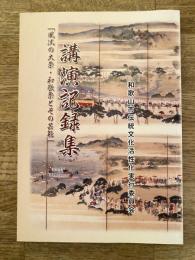 和歌山市伝統文化活性化実行委員会
講演記録集
「風流の大祭・和歌祭とその芸能」